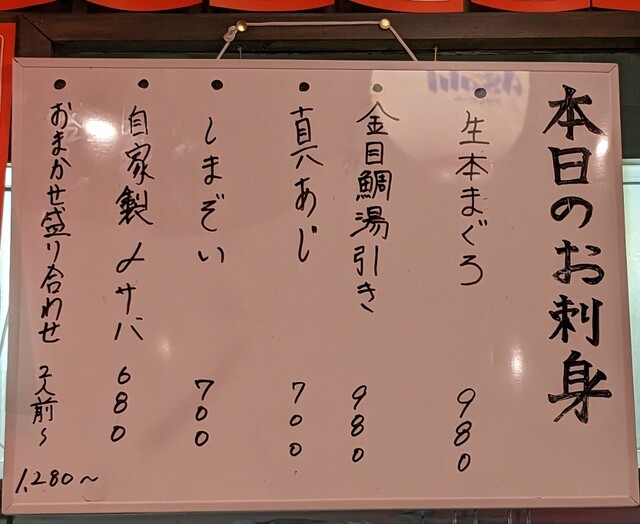 本日のお刺身
・生本まぐろ 980
・金目鯛湯引き 980
・真あじ 700
・しまぞい 700
・自家製〆サバ 680
・おまかせ盛り合わせ 2人前~
1,280~